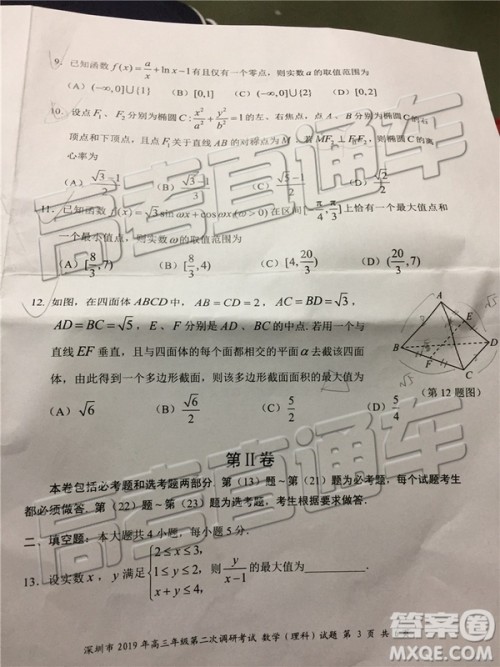 9. 已知函数 f(x)=a/x+ln x-1 有且仅有一个零点，则实数 a 的取值范围为
（A）(-∞,0]∪{1} （B）[0,1] （C）(-∞,0]∪[1] （D）[0,2]
10. 设点 F₁、F₂ 分别为椭圆 C: x²/a²+y²/b²=1 的左、右焦点，点 A、B 分别为椭圆 C 的右
顶点和下顶点，且点 F₁ 关于直线 AB 的对称点为 M，若 MF₂⊥F₁F₂，则椭圆 C 的离
心率为
（A）(√3-1)/2 （B）(√3-1)/ （C）(√5-1)/2 （D）√2/2
11. 已知函数 f(x)=√3 sin ωx+cos ωx(ω>0) 在区间 [-π/4,π/3] 上恰有一个最大值点和
一个最小值点，则实数 ω 的取值范围为
（A）[8/3,7) （B）[8/3,4) （C）[4,20/3) （D）(20/3,7)
12. 如图，在四面体 ABCD 中，AB=CD=2，AC=BD=√3，
AD=BC=√5，E、F 分别是 AD、BC 的中点.若用一个与
直线 EF 垂直，且与四面体的每个面都相交的平面 α 去截该四面
体，由此得到一个多边形截面，则该多边形截面面积的最大值为
（A）√6 （B）√6/2 （C）5/2 （D）5/4
A
E
B
D
F
C
（第 12 题图）
√5
第 II 卷
本卷包括必考题和选考题两部分. 第（13）题~第（21）题为必考题，每个试题考生
都必须做答. 第（22）题~第（23）题为选考题，考生根据要求做答.
二、填空题：本大题共 4 小题，每小题 5 分.
13. 设实数 x，y 满足 {2≤x≤3, 1≤y≤2, x+y≤4, 则 y/(x-1) 的最大值为
深圳市 2019 年高三年级第二次调研考试 数学（理科）试题 第 3 页 共
高考直通车
高考直通车
高考直通车
答案圈
MXQE.COM